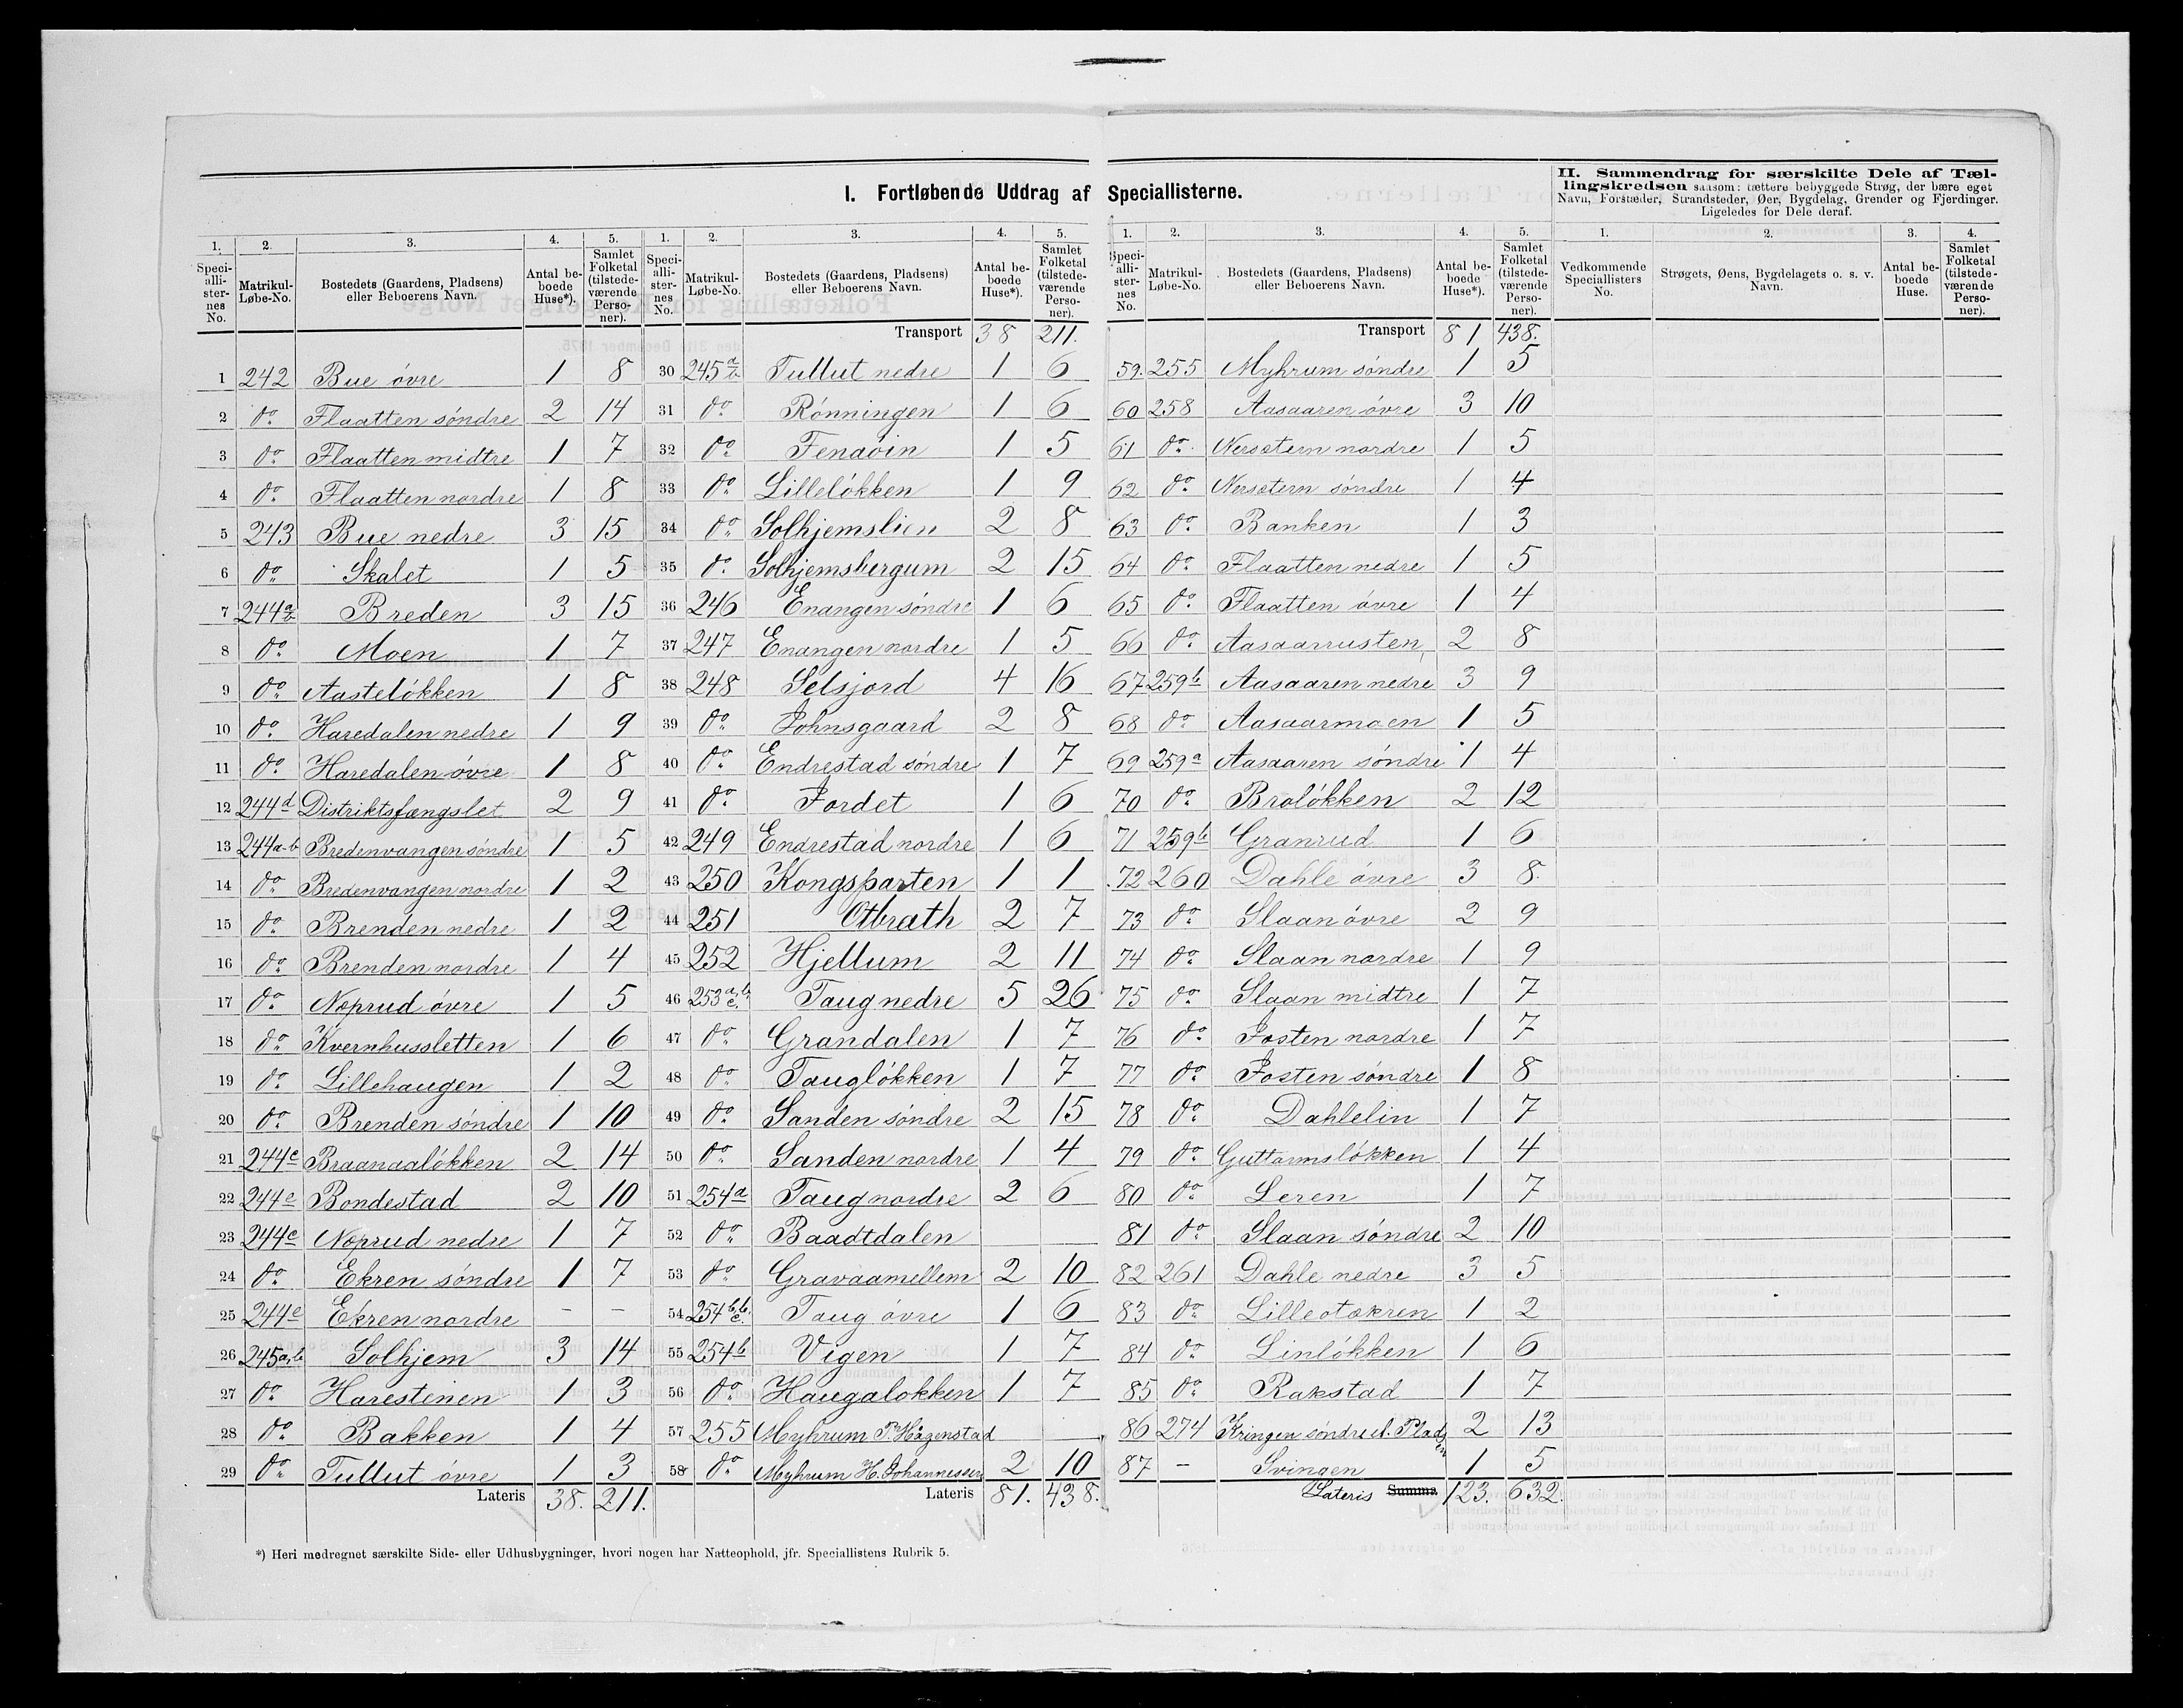 I. Fortløbende Uddrag af Speciallisterne.
1. 2. 3. 4. 5.
Speciallisternes No. Matrikul-Løbe-No. Bostedets (Gaardens, Pladsens) eller Beboerens Navn. Antal beboede Huse*). Samlet Folketal (tilstedeværende Personer).
1 242 Bue øvre 1 8
2 do Flaatten søndre 2 14
3 do Flaatten midtre 1 7
4 do Flaatten nordre 1 8
5 243 Bue nedre 3 15
6 do Skalet 1 5
7 244 a b Breden 3 15
8 do Moen 1 7
9 do Aasteløkken 1 8
10 do Haredalen nedre 1 9
11 do Haredalen øvre 1 8
12 244d Distriktsfængslet 2 9
13 244a-b Bredenvangen søndre 1 5
14 do Bredenvangen nordre 1 2
15 do Brenden nedre 1 2
16 do Brenden nordre 1 4
17 do Noprud øvre 1 5
18 do Kvernhussletten 1 6
19 do Lillehaugen 1 2
20 do Brenden søndre 1 10
21 244c Braanaaløkken 2 14
22 244e Bondestad 2 10
23 244e Noprud nedre 1 7
24 do Ekren søndre 1 7
25 244e Ekren nordre - -
26 245a,b Solhjem 3 14
27 do Harestinen 1 3
28 do Bakken 1 4
29 do Tullut øvre 1 3
Lateris 38. 211.
1. 2. 3. 4. 5.
Speciallisternes No. Matrikul-Løbe-No. Bostedets (Gaardens, Pladsens) eller Beboerens Navn. Antal beboede Huse*). Samlet Folketal (tilstedeværende Personer).
Transport 38 211.
30 245 a b Tullut nedre 1 6
31 do Rønningen 1 6
32 do Tenaøin 1 5
33 do Lilleløkken 1 9
34 do Solhjemslien 2 8
35 do Solhjemsbergum 2 15
36 246 Enangen søndre 1 6
37 247 Enangen nordre 1 5
38 248 Selsjord 4 16
39 do Johnsgaard 2 8
40 do Endrestad søndre 1 7
41 do Jordet 1 6
42 249 Endrestad nordre 1 6
43 250 Kongsparten 1 1
44 251 Olbrath 2 7
45 252 Hjellum 2 11
46 253 a,b c. Taug nedre 5 26
47 do Grandalen 1 7
48 do Taugløkken 1 7
49 do Sanden søndre 2 15
50 do Sanden nordre 1 4
51 254a Taug nordre 2 6
52 do Baadtdalen
53 do Gravaamellem 2 10
54 254 b, c. Taug øvre 1 6
55 254b Vigen 1 7
56 do Haugaløkken 1 7
57 255 Myhrum P. Hagenstad
58 do Myhrum H. Johannessen 2 10
Lateris 81. 438.
1. 2. 3. 4. 5.
Speciallisternes No. Matrikul-Løbe-No. Bostedets (Gaardens, Pladsens) eller Beboerens Navn. Antal beboede Huse*). Samlet Folketal (tilstedeværende Personer).
Transport 81 438.
59. 255 Myhrum søndre 1 5
60 258 Aasaaren øvre 3 10
61 do Nersætern nordre 1 5
62 do Nersætern søndre 1 4
63 do Banken 1 3
64 do Flaatten nedre 1 5
65 do Flaatten øvre 1 4
66 do Aasaarrusten 2 8
67 259b Aasaaren nedre 3 9
68 do Aasaarmoen 1 5
69 259a Aasaaren søndre 1 4
70 do Broløkken 2 12
71 259b Granrud 1 6
72 260 Dahle øvre 3 8
73 do Slaan øvre 2 9
74 do Slaan nordre 1 9
75 do Slaan midtre 1 7
76 do Josten nordre 1 7
77 do Josten søndre 1 8
78 do Dahlelin 1 7
79 do Guttormsløkken 1 4
80 do Leren 1 7
81 do Slaan søndre 2 10
82 261 Dahle nedre 3 5
83 do Lillestøkren 1 2
84 do Linløkken 1 6
85 do Rakstad 1 7
86 274 Kringen søndre u. Pladsen 2 13
87 - Svingen 1 5
Lateris Summa 123. 632.
II. Sammendrag for særskilte Dele af Tællingskredsen saasom: tættere bebyggede Strøg, der bære eget Navn, Forstæder, Strandsteder, Øer, Bygdelag, Grender og Fjerdinger. Ligeledes for Dele deraf.
1. 2. 3. 4.
Vedkommende Speciallisters No. Strøgets, Øens, Bygdelagets o. s. v. Navn. Antal beboede Huse. Samlet Folketal (tilstedeværende Personer).
*) Heri medregnet særskilte Side- eller Udhusbygninger, hvori nogen har Natteophold, jfr. Speciallistens Rubrik 5.